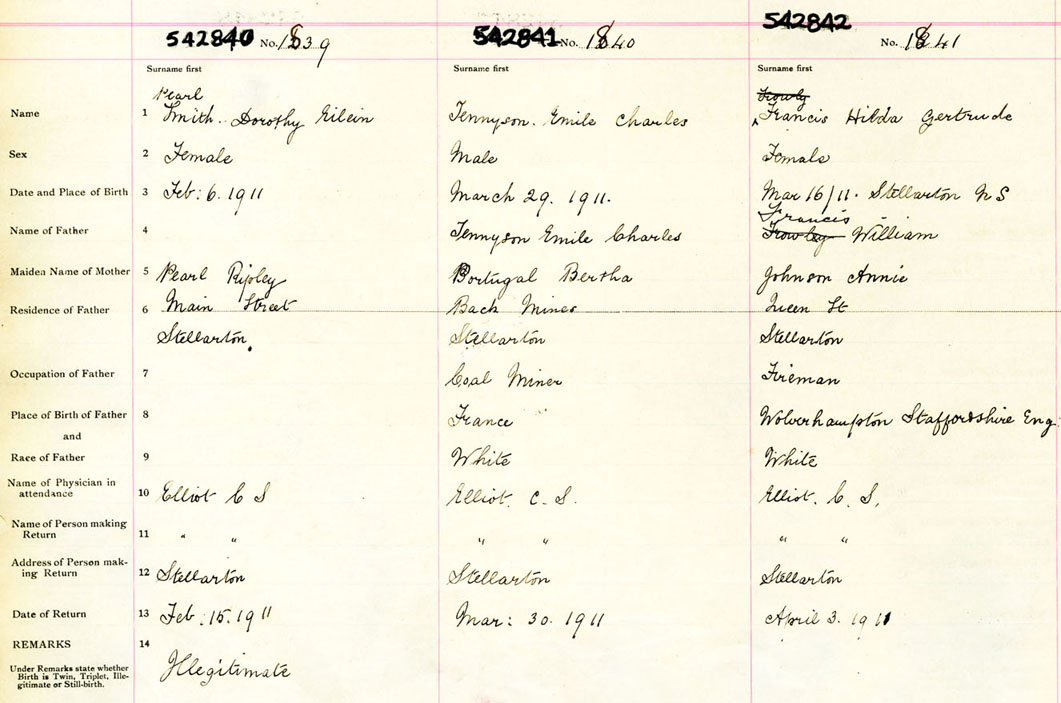 542840 No. 1839
542841 No. 1840
542842 No. 1841
Surname first
Surname first
Surname first
Name 1
Pearl
Smith. Dorothy Eilein
Tennyson. Emile Charles
Trowly
^Francis Hilda Gertrude
Sex 2 Female
Male
Female
Date and Place of Birth 3 Feb: 6. 1911
March 29. 1911.
Mar 16/11. Stellarton N S
Name of Father 4
Tennyson Emile Charles
Francis
Trowley William
Maiden Name of Mother 5 Pearl Ripley
Portugal Bertha
Johnson Annie
Residence of Father 6 Main Street
Back Mines
Queen St
Stellarton.
Stellarton
Stellarton
Occupation of Father 7
Coal Miner
Fireman
Place of Birth of Father 8
France
Wolverhampton Staffordshire Eng.
and
Race of Father 9
White
White
Name of Physician in
attendance 10 Elliot C S
Elliot. C. S.
Elliot. C. S.
Name of Person making
Return 11 " "
" "
" "
Address of Person mak-
ing Return 12 Stellarton
Stellarton
Stellarton
Date of Return 13 Feb: 15. 1911
Mar: 30. 1911
April 3. 1911
REMARKS 14
Under Remarks state whether
Birth is Twin, Triplet, Ille-
gitimate or Still-birth.
Illegitimate